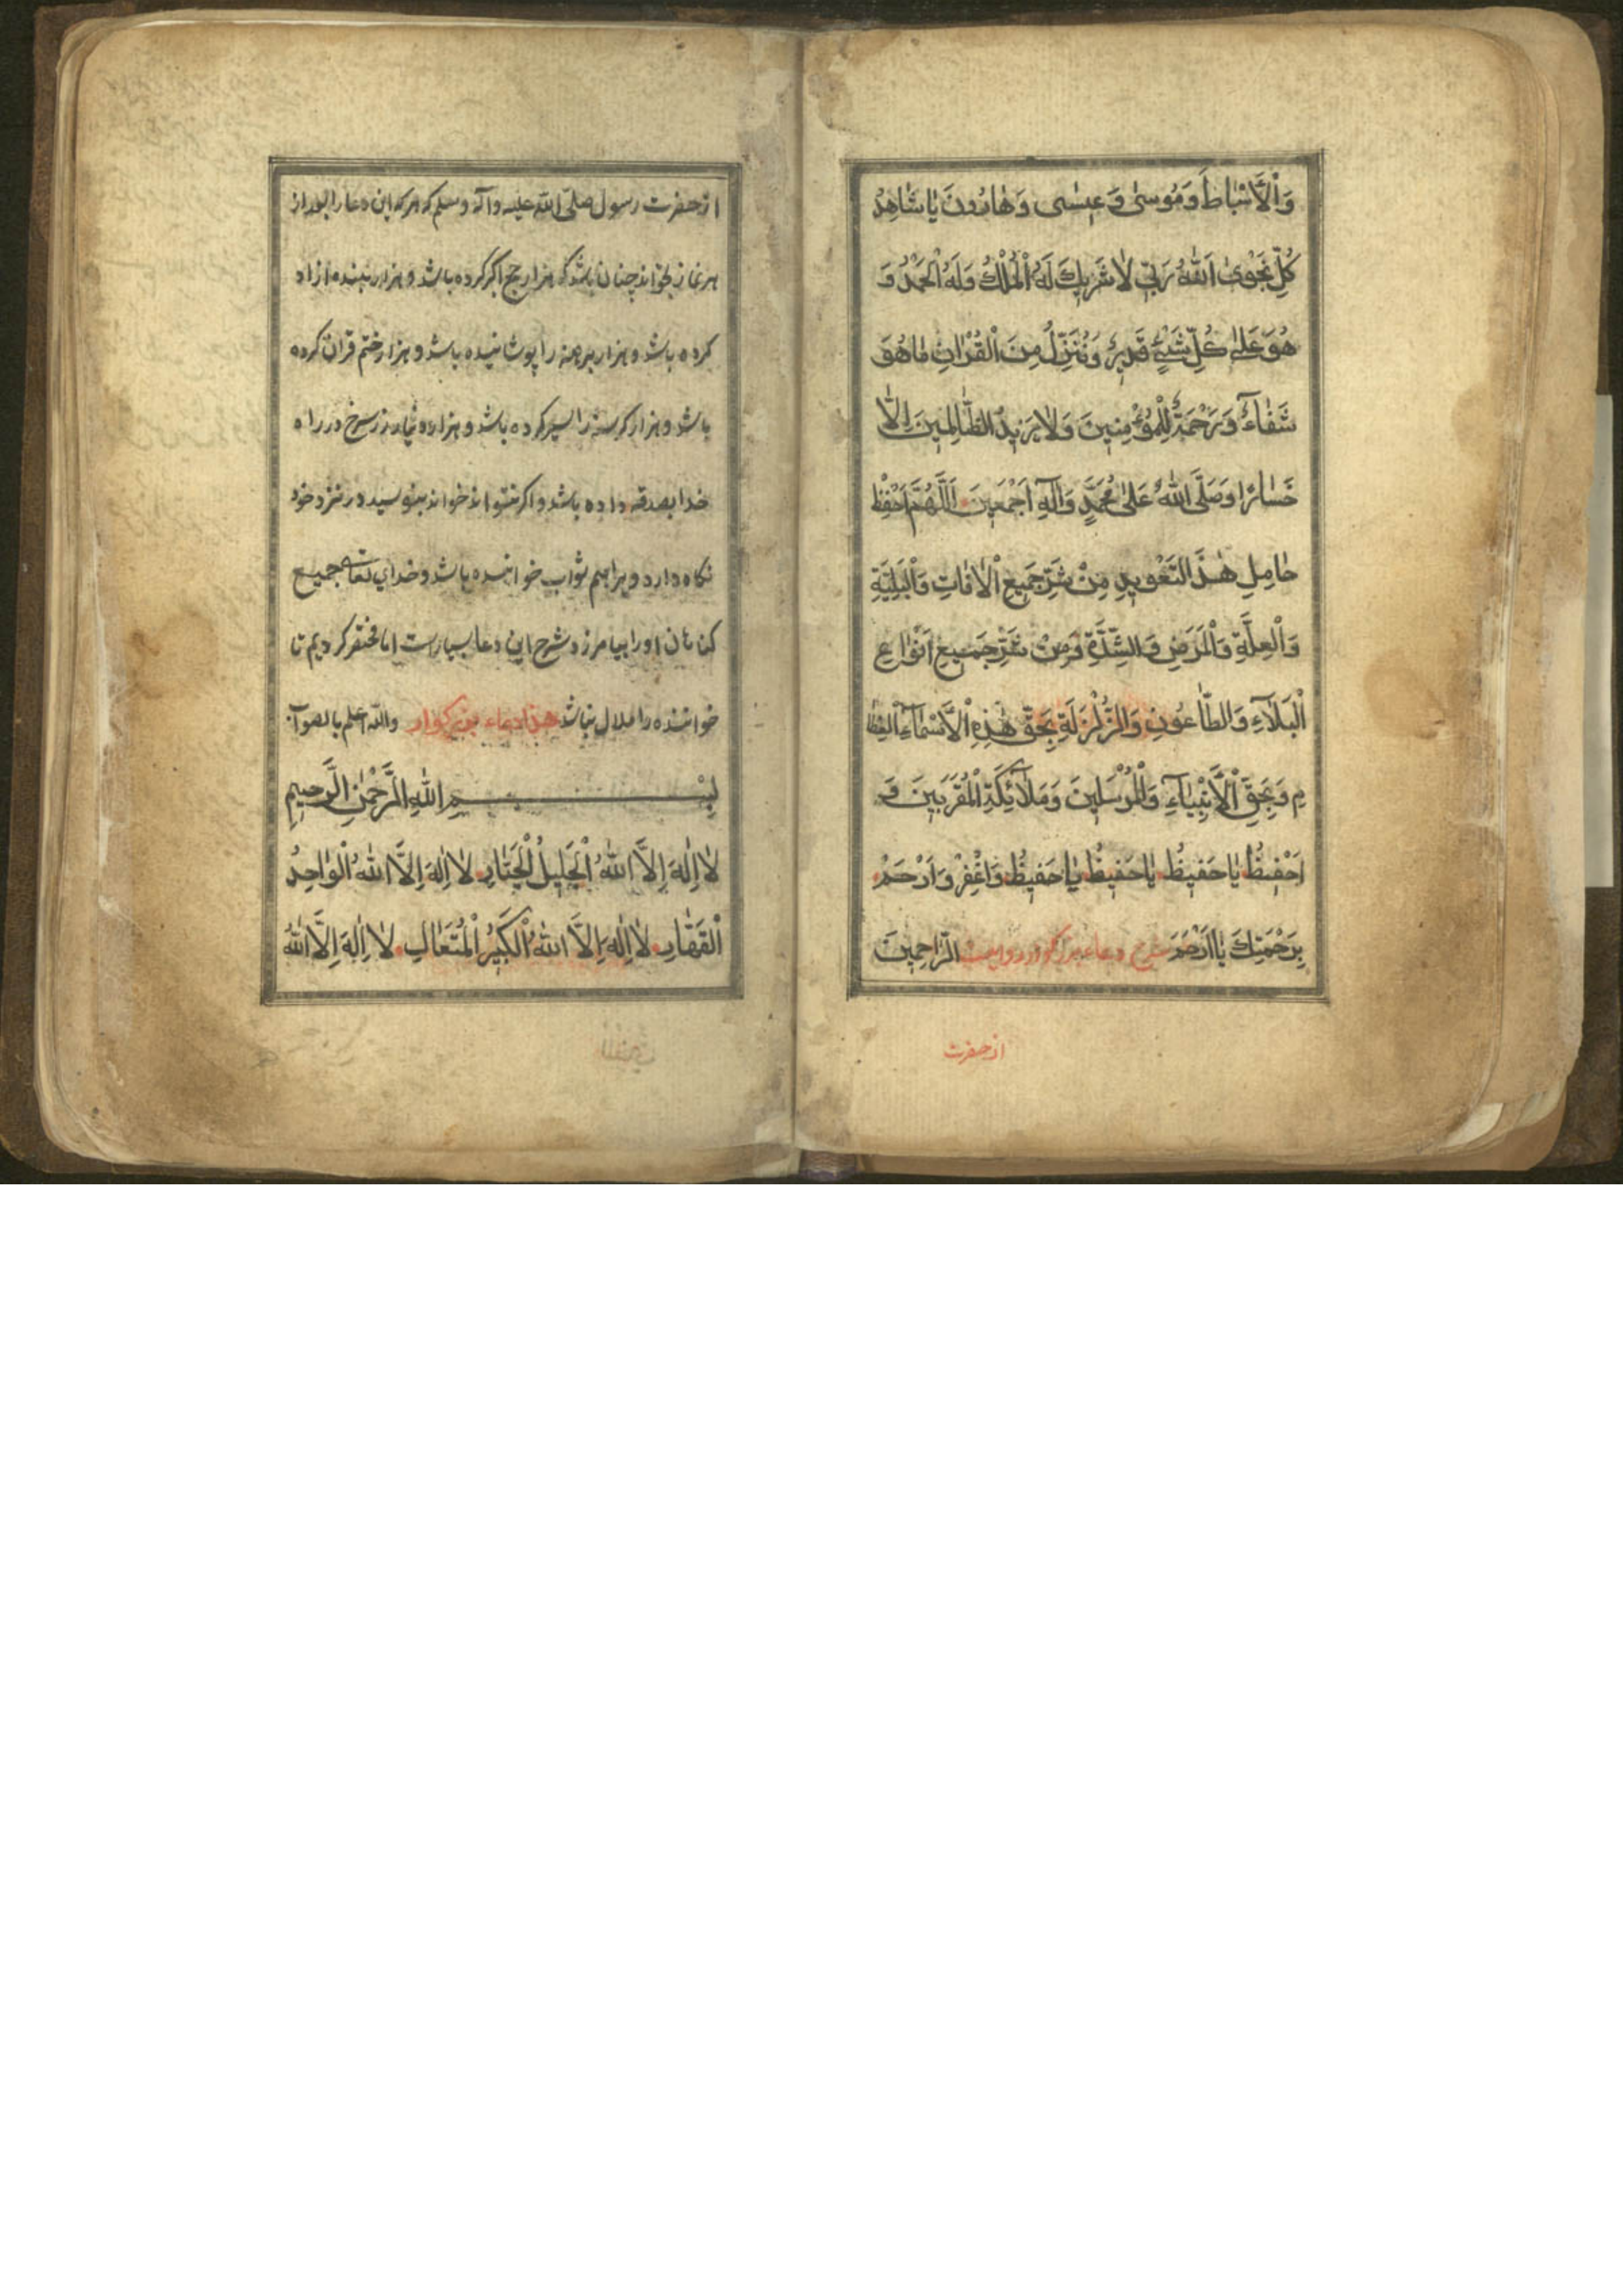 وَالْأَسْبَاطَ وَمُوسٰى وَعِيسٰى وَهَارُونَ يَا شَاهِدُ
كُلِّ نَجْوٰى اَللّٰهُ رَبِّي لَا شَرِيكَ لَهُ الْمُلْكُ وَلَهُ الْحَمْدُ وَ
هُوَ عَلٰى كُلِّ شَيْءٍ قَدِيرٌ وَنُنَزِّلُ مِنَ الْقُرْاٰنِ مَا هُوَ
شَفَاءٌ وَرَحْمَةٌ لِلْمُؤْمِنِينَ وَلَا يَزِيدُ الظَّالِمِينَ اِلَّا
خَسَارًا وَصَلَّى اللّٰهُ عَلٰى مُحَمَّدٍ وَاٰلِهِ اَجْمَعِينَ اَللّٰهُمَّ احْفِظْ
حَامِلِ هٰذَ التَّعْوِيدِ مِنْ شَرِّ جَمِيعِ الْاٰفَاتِ وَالْبَلِيَّةِ
وَالْعِلَّةِ وَالْمَرَضِ وَالشِّدَّةِ وَمِنْ شَرِّ جَمِيعِ اَنْوَاعِ
الْبَلَاءِ وَالطَّاعُونِ وَالزَّلْزَلَةِ بِحَقِّ هٰذِهِ الْاَسْمَاءِ الْعِظَا
مِ وَبِحَقِّ الْاَنْبِيَاءِ وَالْمُرْسَلِينَ وَمَلَائِكَةِ الْمُقَرَّبِينَ وَ
اَحْفِيظُ يَا حَفِيظُ يَا حَفِيظُ يَا حَفِيظُ وَاغْفِرْ وَارْحَمْ
بِرَحْمَتِكَ يَا اَرْحَمَ الرَّاحِمِينَ شرح دعاء بزرکوار روایست
از حضرت
از حضرت رسول صلی الله علیه وآله وسلم که هر که این دعا را بعد از
هر نماز بخواند چنان باشد که هزار حج اکبر کرده باشد و هزار بنده ازاد
کرده باشد و هزار برهنه را پوشانیده باشد و هزار ختم قران کرده
باشد و هزار کرسنه را سیر کرده باشد و هزار دینار زر سرخ در راه
خدا بصدقه داده باشد و اکر نتواند خواند بنویسید در نزد خود
نکاه دارد ویرا هم ثواب خواننده باشد و خدای تعالی جمیع
کناهان اورا بیامرزد شرح این دعا بسیارست اما مختصر کردیم تا
خواننده را ملال نباشد هذا دعاء بزرکوار والله اعلم بالصواب
بِسْمِ اللّٰهِ الرَّحْمٰنِ الرَّحِيمِ
لَا اِلٰهَ اِلَّا اللّٰهُ الْجَلِيلُ الْجَبَّارِ لَا اِلٰهَ اِلَّا اللّٰهُ الْوَاحِدُ
الْقَهَّارِ لَا اِلٰهَ اِلَّا اللّٰهُ الْكَبِيرُ الْمُتَعَالِ لَا اِلٰهَ اِلَّا اللّٰهُ